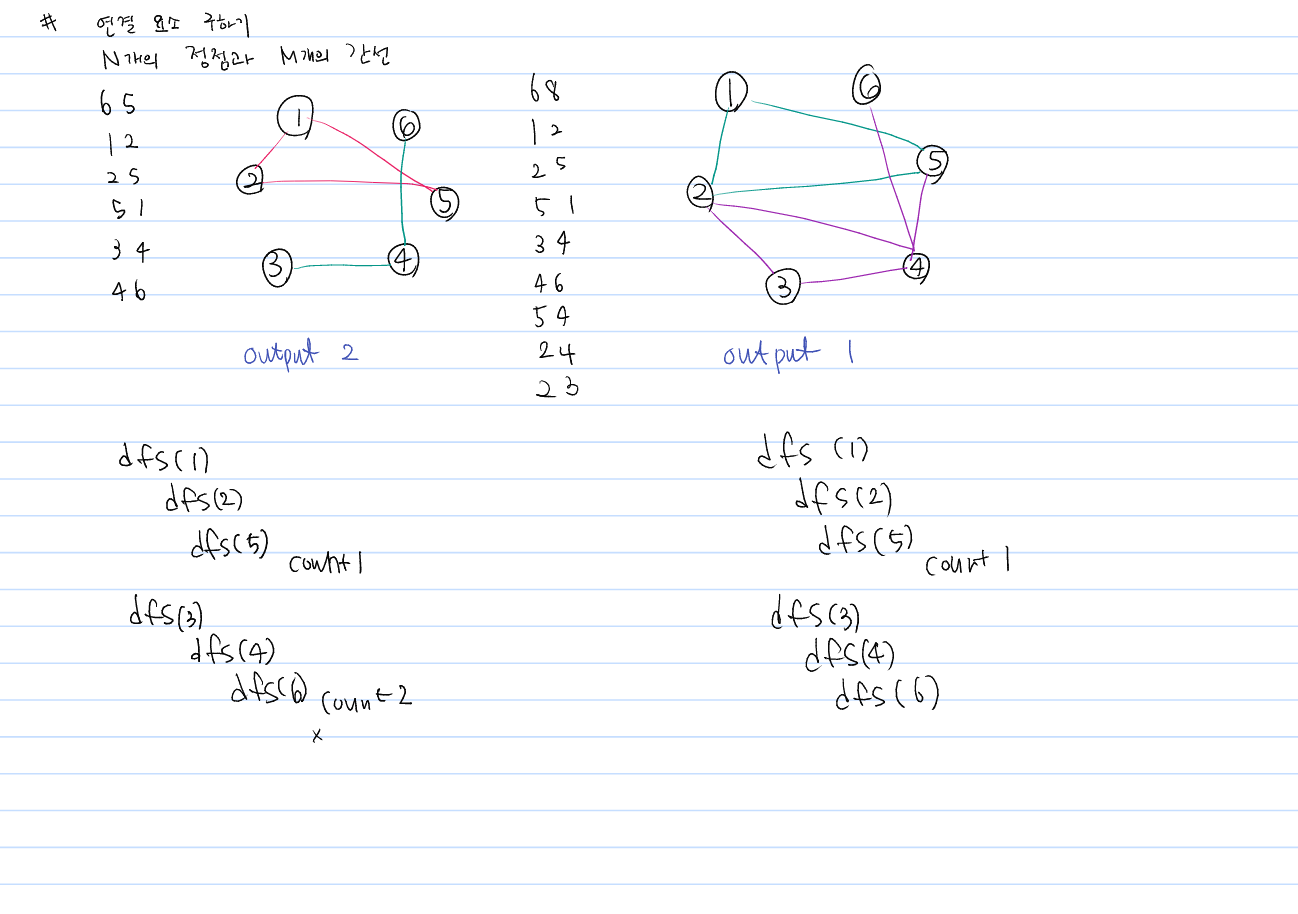 # 연결 요소 구하기
N개의 정점과 M개의 간선
6 5
1 2
2 5
5 1
3 4
4 6
1
6
2
5
3
4
output 2
6 8
1 2
2 5
5 1
3 4
4 6
5 4
2 4
2 3
1
6
5
2
4
3
output 1
dfs(1)
dfs(2)
dfs(5)
count 1
dfs(3)
dfs(4)
dfs(6)
count 2
x
dfs (1)
dfs(2)
dfs(5)
count 1
dfs(3)
dfs(4)
dfs(6)